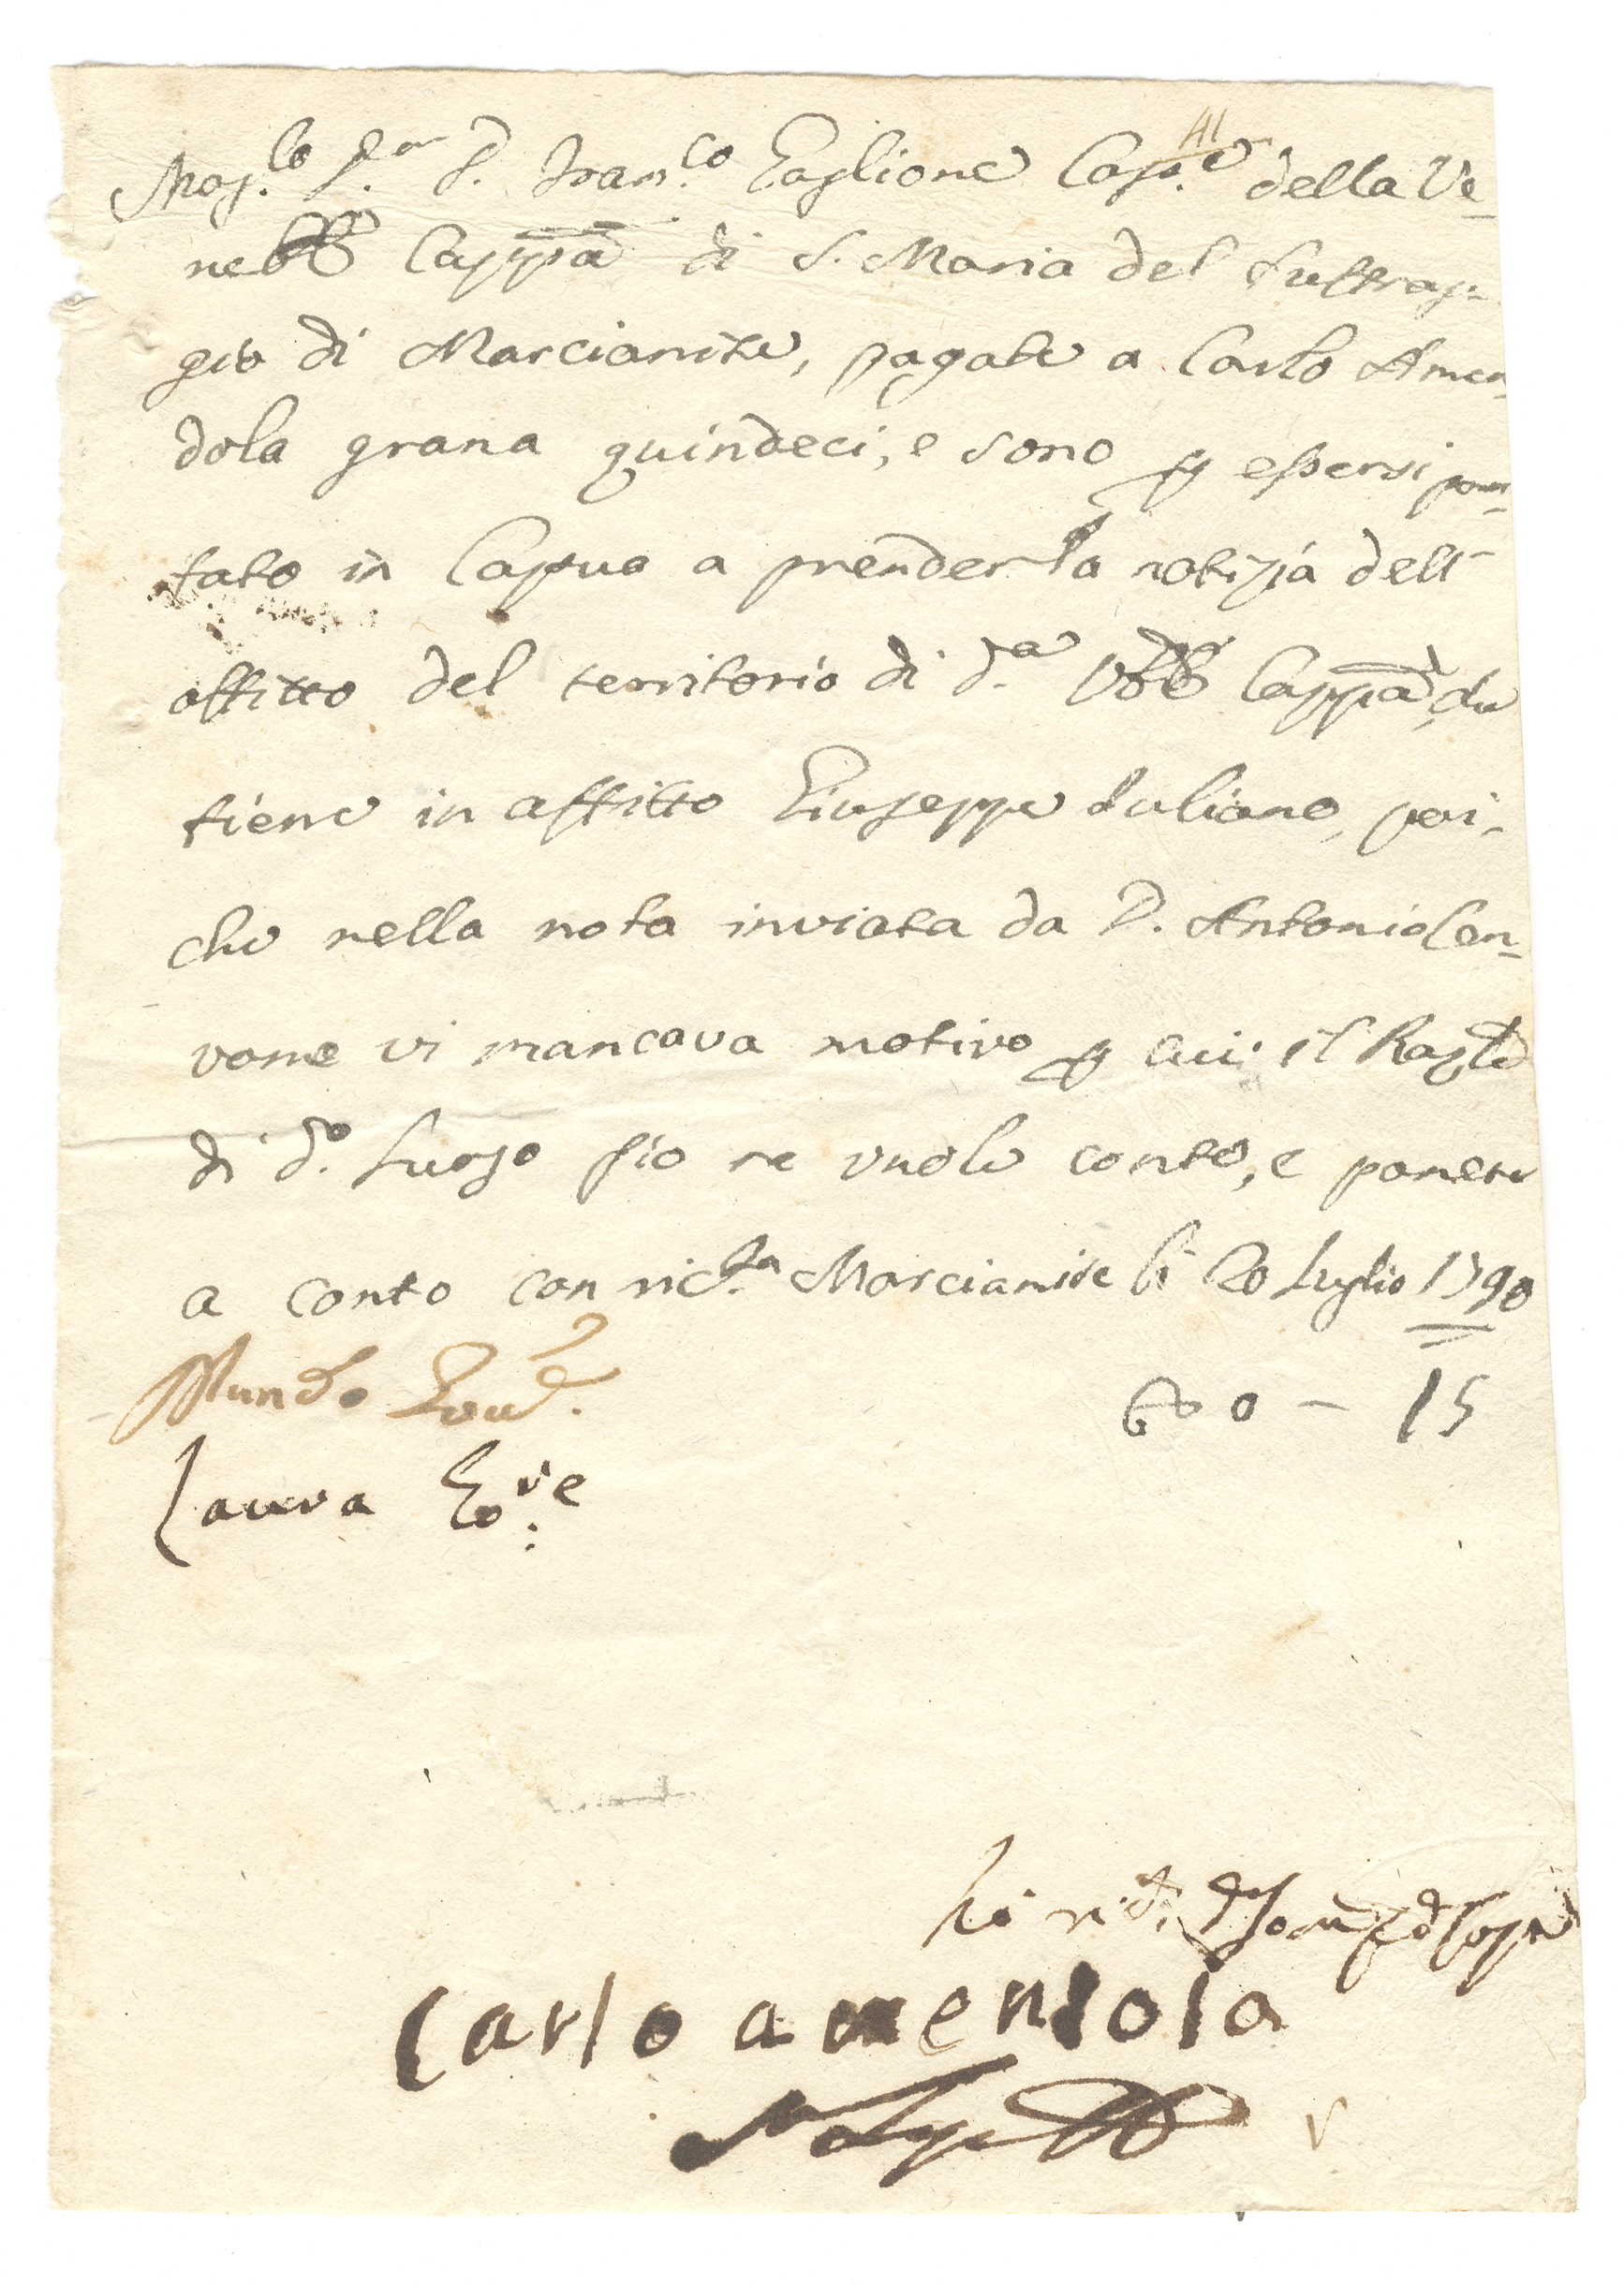 41
Mag.co S.r D. Fran.co Taglione Cass.e della Ve-
neble Cappa di S. Maria del Suffrag-
gio di Marcianise, pagate a Carlo Amen-
dola grana quindeci, e sono p essersi por-
tato in Capua a prender la notizia dell'
affitto del territorio di d.a Vble Cappa, che
tiene in affitto Giuseppe Iuliano, poi-
che nella nota inviata da D. Antonio Can-
vone vi mancava motivo p cui il Razle
di d.o Luogo Pio ne vuole conto, e ponete
a conto con ric.ta Marcianise li 20 Luglio 1790
Mundo Gov.e
0 – 15
Laura Gov.re
Carlo amendola